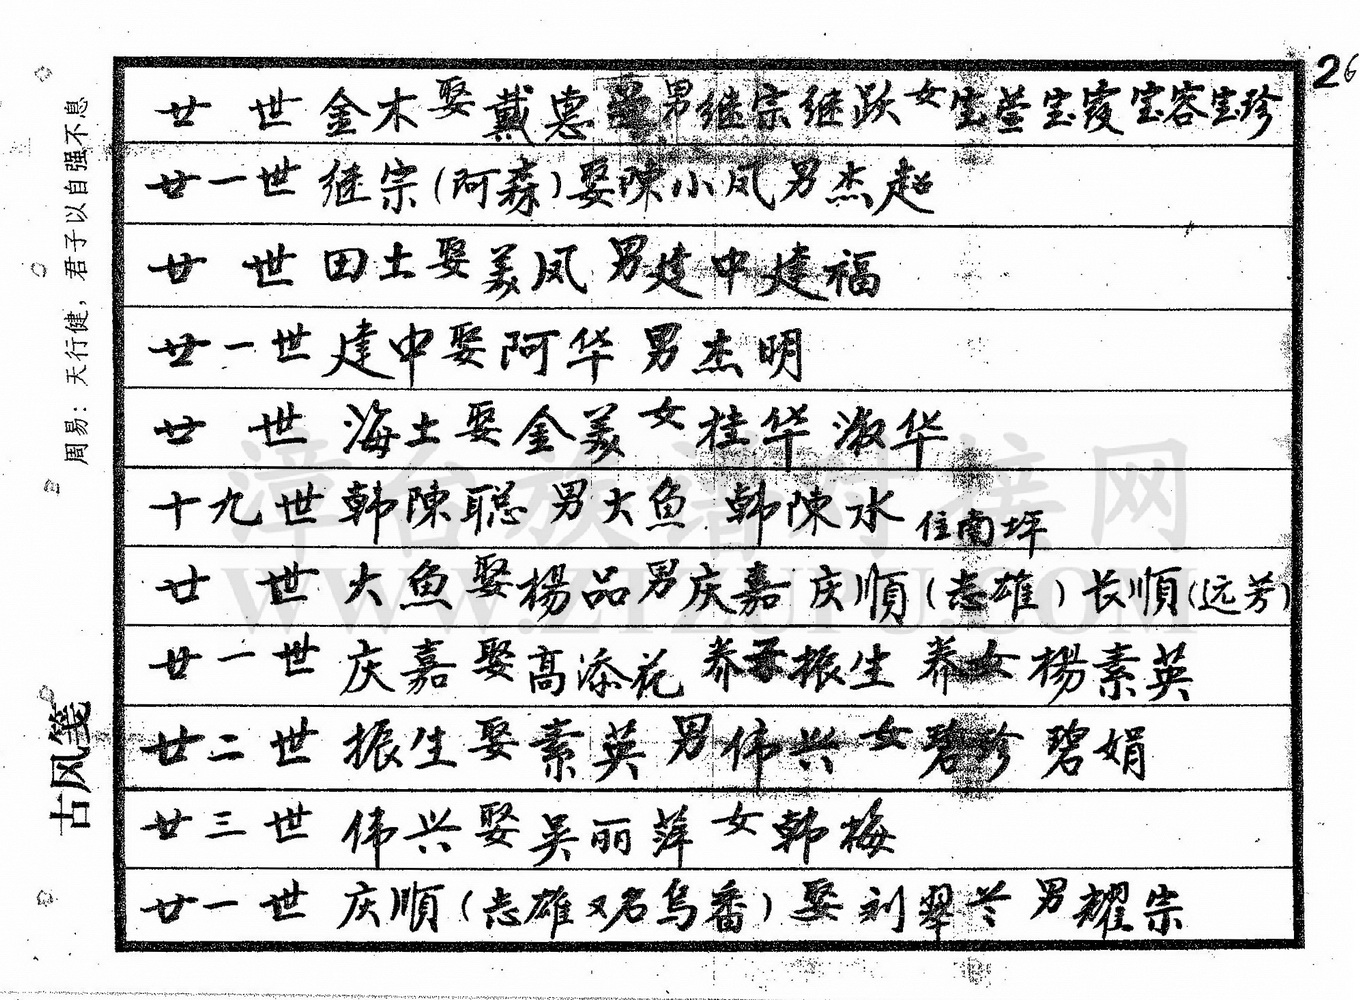 26
廿 世 金木娶戴惠 男继宗继跃女宝萱宝霞宝容宝珍
廿一世 继宗(阿森)娶陳小凤男杰超
廿 世 田土娶美凤 男建中建福
廿一世 建中娶阿华 男杰明
廿 世 海土娶金美女桂华淑华
十九世 韩陳聪 男大鱼 韩陳水 住南坪
廿 世 大鱼娶楊品男庆嘉 庆順(志雄)长順(远芳)
廿一世 庆嘉娶高添花 养子振生 养女楊素英
廿二世 振生娶素英男伟兴 女碧珍 碧娟
廿三世 伟兴娶吴丽萍女韩梅
廿一世 庆順(志雄又名乌番)娶刘翠兰 男耀宗
周易：天行健，君子以自强不息
古风笺
漳台族谱对接网
WWW.ZTZUPU.COM